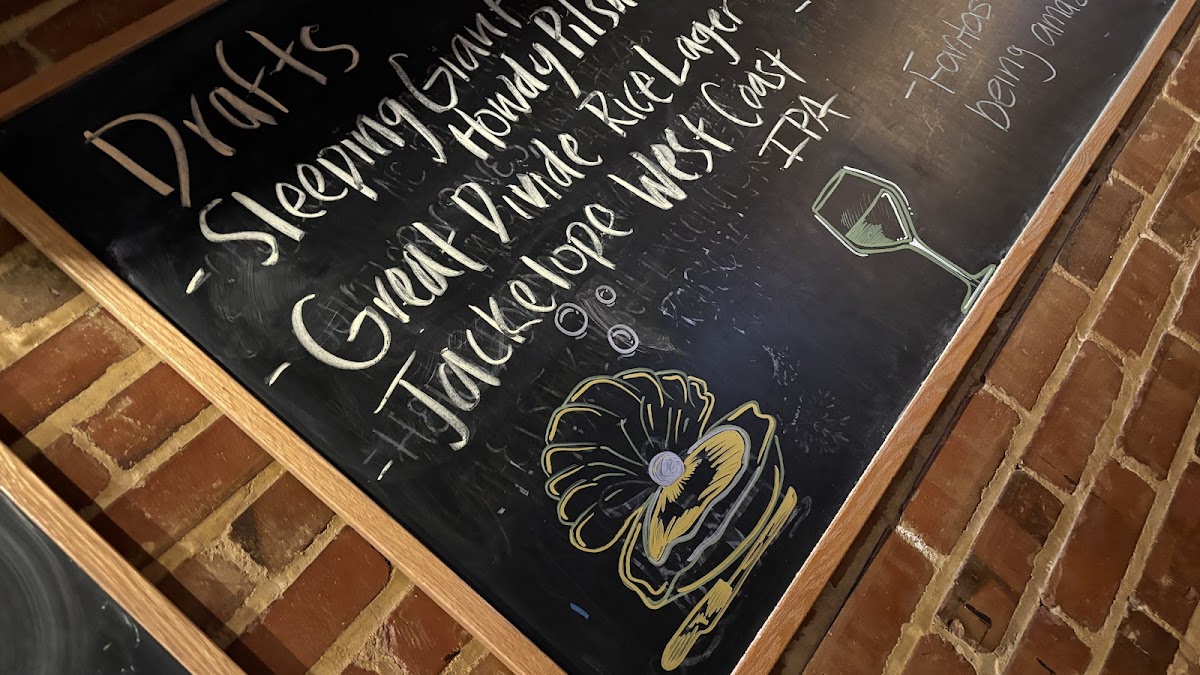 Drafts
- Sleeping Giant
Howdy Pils
- Great Divide Rice Lager
- Jackelope West Coast
IPA
-
being